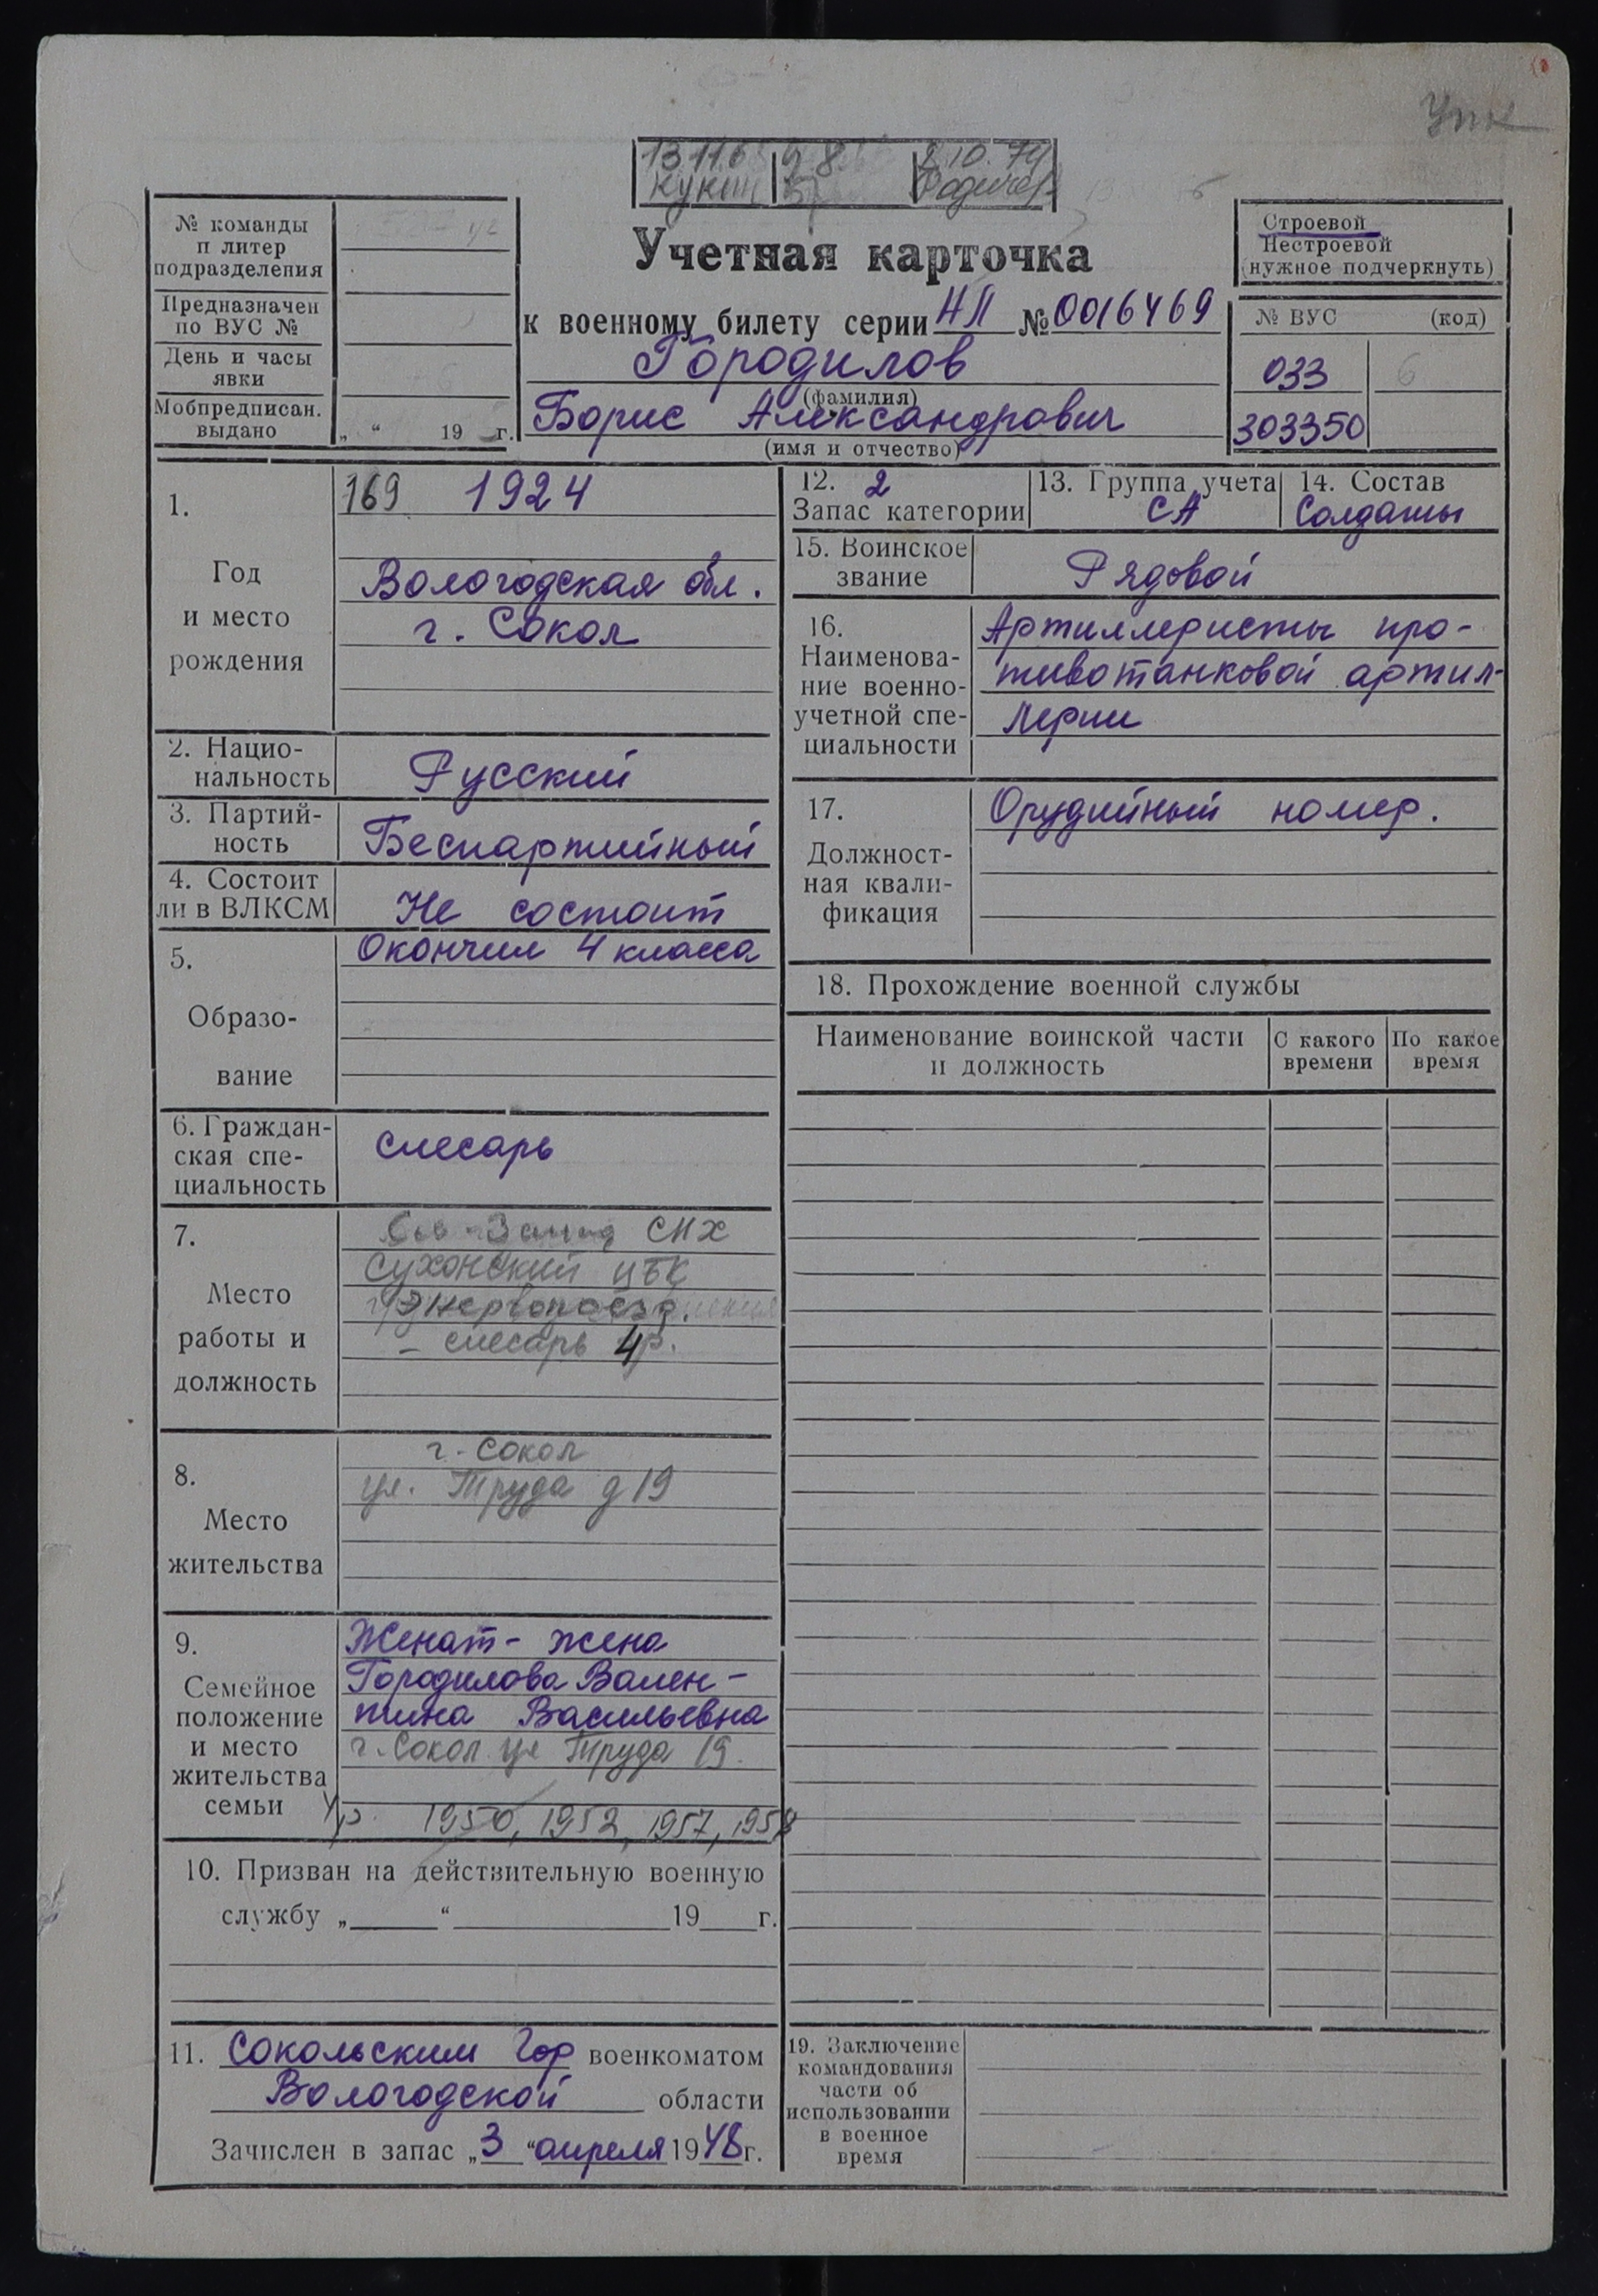 Упк
13 11.6
Кукин
2.10.74
№ команды
п литер
подразделения
Предназначен
по ВУС №
День и часы
явки
Мобпредписан.
выдано
„ “ 19 г.
Учетная карточка
к военному билету серии НЛ № 0016469
Городилов
(фамилия)
Борис Александрович
(имя и отчество)
Строевой
Нестроевой
(нужное подчеркнуть)
№ ВУС (код)
033 6
303350
1.
Год
и место
рождения
169 1924
Вологодская обл.
г. Сокол
2. Нацио-
нальность
Русский
3. Партий-
ность
Беспартийный
4. Состоит
ли в ВЛКСМ
Не состоит
5.
Образо-
вание
Окончил 4 класса
6. Граждан-
ская спе-
циальность
слесарь
7.
Место
работы и
должность
СНХ
Сухонский ЦБК
Энергопоезд.
– слесарь 4р.
8.
Место
жительства
г. Сокол
ул. Труда д 19
9.
Семейное
положение
и место
жительства
семьи
Женат – жена
Городилова Вален-
тина Васильевна
г. Сокол ул Труда 19.
1950, 1952, 1957, 1958
10. Призван на действительную военную
службу „ “ 19 г.
11. Сокольским Гор военкоматом
Вологодской области
Зачислен в запас „3 “ апреля 1948г.
12. 2
Запас категории
13. Группа учета
СА
14. Состав
Солдаты
15. Воинское
звание
Рядовой
16.
Наименова-
ние военно-
учетной спе-
циальности
Артиллеристы про-
тивотанковой артил-
лерии
17.
Должност-
ная квали-
фикация
Орудийный номер.
18. Прохождение военной службы
Наименование воинской части
и должность
С какого
времени
По какое
время
19. Заключение
командования
части об
использовании
в военное
время